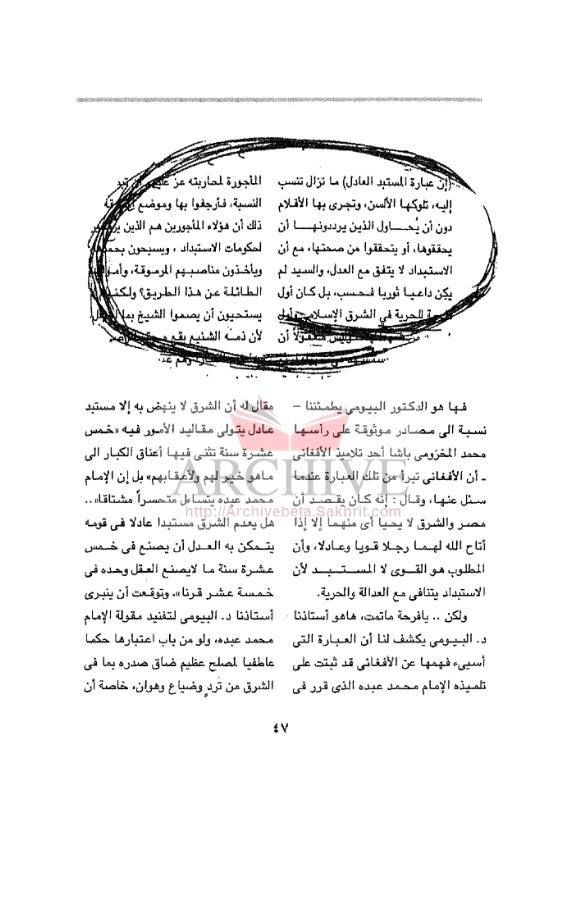 (إن عبارة المستبد العادل) ما تزال تنسب
إليه، تلوكها الألسن، وتجرى بها الأقلام
دون أن يُحاول الذين يرددونها أن
يحققوها، أو يتحققوا من صحتها، مع أن
الاستبداد لا يتفق مع العدل، والسيد لم
يكن داعيا ثوريا فحسب، بل كان أول
للحرية في الشرق الإسلامى
المأجورة لمحاربته عز
النسبة، فأرجفوا بها وموضع
ذلك أن هؤلاء المأجورين هم الذين
لحكومات الاستبداد ، ويسبحون
ويأخذون مناصبهم المرموقة،
الطائلة عن هذا الطريق؟
يستحيون أن يصموا الشيخ بما
لأن ذمه الشنيع يقع
فها هو الدكتور البيومى يطمئننا –
نسبة الى مصادر موثوقة على رأسها
محمد المخزومى باشا أحد تلاميذ الأفغانى
ـ أن الأفغانى تبرأ من تلك العبارة عندما
سئل عنها، وقال : إنه كان يقصد أن
مصر والشرق لا يحيا أى منهما إلا إذا
أتاح الله لهما رجلا قويا وعادلا، وأن
المطلوب هو القوى لا المستبد لأن
الاستبداد يتنافى مع العدالة والحرية.
ولكن .. يافرحة ماتمت، هاهو أستاذنا
د. البيومى يكشف لنا أن العبارة التى
أسىء فهمها عن الأفغانى قد ثبتت على
تلميذه الإمام محمد عبده الذى قرر فى
مقال له أن الشرق لا ينهض به إلا مستبد
عادل يتولى مقاليد الأمور فيه «خمس
عشرة سنة تثنى فيها أعناق الكبار الى
ماهو خير لهم ولأعقابهم» بل إن الإمام
محمد عبده يتساءل متحسراً مشتاقا»..
هل يعدم الشرق مستبدا عادلا فى قومه
يتمكن به العدل أن يصنع فى خمس
عشرة سنة ما لايصنع العقل وحده فى
خمسة عشر قرنا». وتوقعت أن ينبرى
أستاذنا د. البيومى لتفنيد مقولة الإمام
محمد عبده، ولو من باب اعتبارها حكما
عاطفيا لمصلح عظيم ضاق صدره بما فى
الشرق من تردٍ وضياع وهوان، خاصة أن
ARCHIVE
http://Archivebeta.Sakhrit.com
٤٧